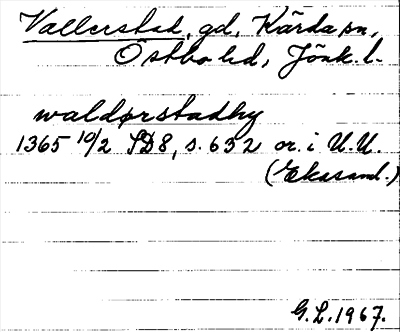 Vallerstad, gd, Kärda sn,
Östbo hd, Jönk. l.
waldørstadhy
1365 10/2 SD8, s. 632 or. i U.U.
(Ekasaml.)
G.L. 1967.